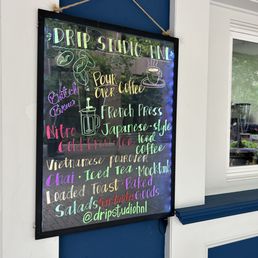 DRIP STUDIO HNL
POUR
OVER COFFEE
Butcher
Brews
FRENCH PRESS
Nitro Japanese-style
Cold Brew Tea Iced
Coffee
Vietnamese pourover
Chai · Iced Tea · Mocktails
Loaded Toast · Baked
Salads Sandwiches Goods
@dripstudiohnl